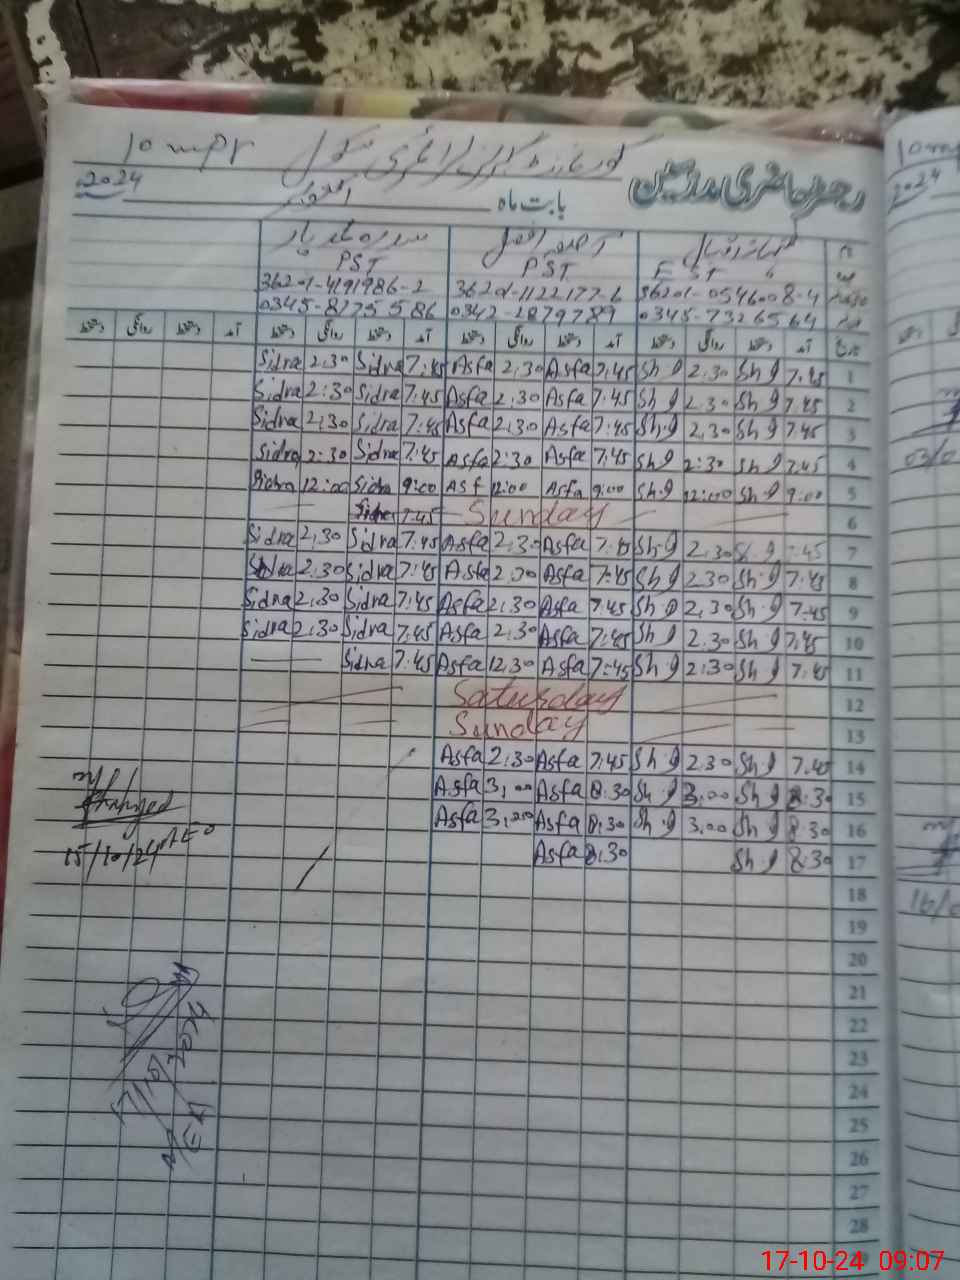 10 mpr
رجسٹر حاضری مدرسین
2024 اکتوبر بابت ماہ
PST PST EST
36201-4191986-2 36201-1122177-6 36201-0546008-4
0345-8775586 0342-2879789 0345-7326564
Sidra 2:30 Sidra 7:45 Asfa 2:30 Asfa 7:45 Sh.g 2:30 Sh.g 7:45 1
Sidra 2:30 Sidra 7:45 Asfa 2:30 Asfa 7:45 Sh.g 2:30 Sh.g 7:45 2
Sidra 2:30 Sidra 7:45 Asfa 2:30 Asfa 7:45 Sh.g 2:30 Sh.g 7:45 3
Sidra 2:30 Sidra 7:45 Asfa 2:30 Asfa 7:45 Sh.g 2:30 Sh.g 7:45 4
Sidra 12:00 Sidra 9:00 Asf 12:00 Asfa 9:00 Sh.g 12:00 Sh.g 9:00 5
7:45 Sunday 6
Sidra 2:30 Sidra 7:45 Asfa 2:30 Asfa 7:45 Sh.g 2:30 7:45 7
Sidra 2:30 Sidra 7:45 Asfa 2:30 Asfa 7:45 Sh.g 2:30 Sh.g 7:45 8
Sidra 2:30 Sidra 7:45 Asfa 2:30 Asfa 7:45 Sh.g 2:30 Sh.g 7:45 9
Sidra 2:30 Sidra 7:45 Asfa 2:30 Asfa 7:45 Sh.g 2:30 Sh.g 7:45 10
Sidra 7:45 Asfa 12:30 Asfa 7:45 Sh.g 2:30 Sh.g 7:45 11
Saturday 12
Sunday 13
Asfa 2:30 Asfa 7:45 Sh.g 2:30 Sh.g 7:45 14
Asfa 3:00 Asfa 8:30 Sh.g 3:00 Sh.g 8:30 15
Asfa 3:00 Asfa 8:30 Sh.g 3:00 Sh.g 8:30 16
Asfa 8:30 Sh.g 8:30 17
15/10/24 AEO
18
19
20
21
22
23
24
25
26
27
28
17-10-24 09:07